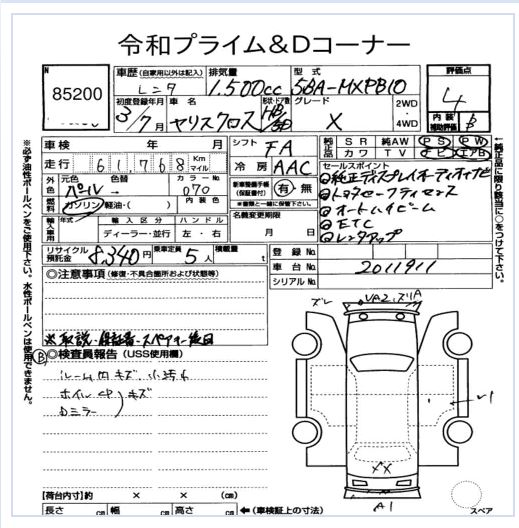 令和プライム&Dコーナー
N
85200
車歴 (自家用以外は記入)
レンタ
排気量
1,500cc
型式
5BA-MXPB10
評価点
4
内装
補助評価
B
初度登録年月
3/7月
車名
ヤリスクロス
形状・ドア数
HB
5D
グレード
X
2WD
4WD
車検 年 月
走行 61,768 Km マイル
シフト
FA
冷房
AAC
純正 SR 純AW PS PW
カワ TV ナビ エアB
外色
元色
パール→
色替
カラー No.
070
内装色
燃料
ガソリン 軽油・( )
新車整備手帳
(保証書付)
有・無
※書類と一緒に保管
名義変更期限
月 日
セールスポイント
①純正ディスプレイオーディオナビ
②トヨタセーフティセンス
③オートハイビーム
④ETC
⑤レンタアップ
輸入車
年式
輸入区分
ハンドル
ディーラー・並行
左・右
リサイクル
預託金
8,340円
乗車定員
5人
積載量
t
登録No.
車台No.
2011911
シリアルNo.
◎注意事項 (修復・不具合箇所および状態等)
※取説・保証書・スペアキー後日
B ◎検査員報告 (USS使用欄)
ルーム内キズ、小汚れ
ホイルCPキズ
Dミラー
ズレ
A1
XX
スペア
【荷台内寸】約 × × (cm)
長さ cm 幅 cm 高さ cm ←(車検証上の寸法)
※必ず油性ボールペンをご使用下さい。水性ボールペンは使用できません。
←純正品に限り該当に○をつけて下さい。